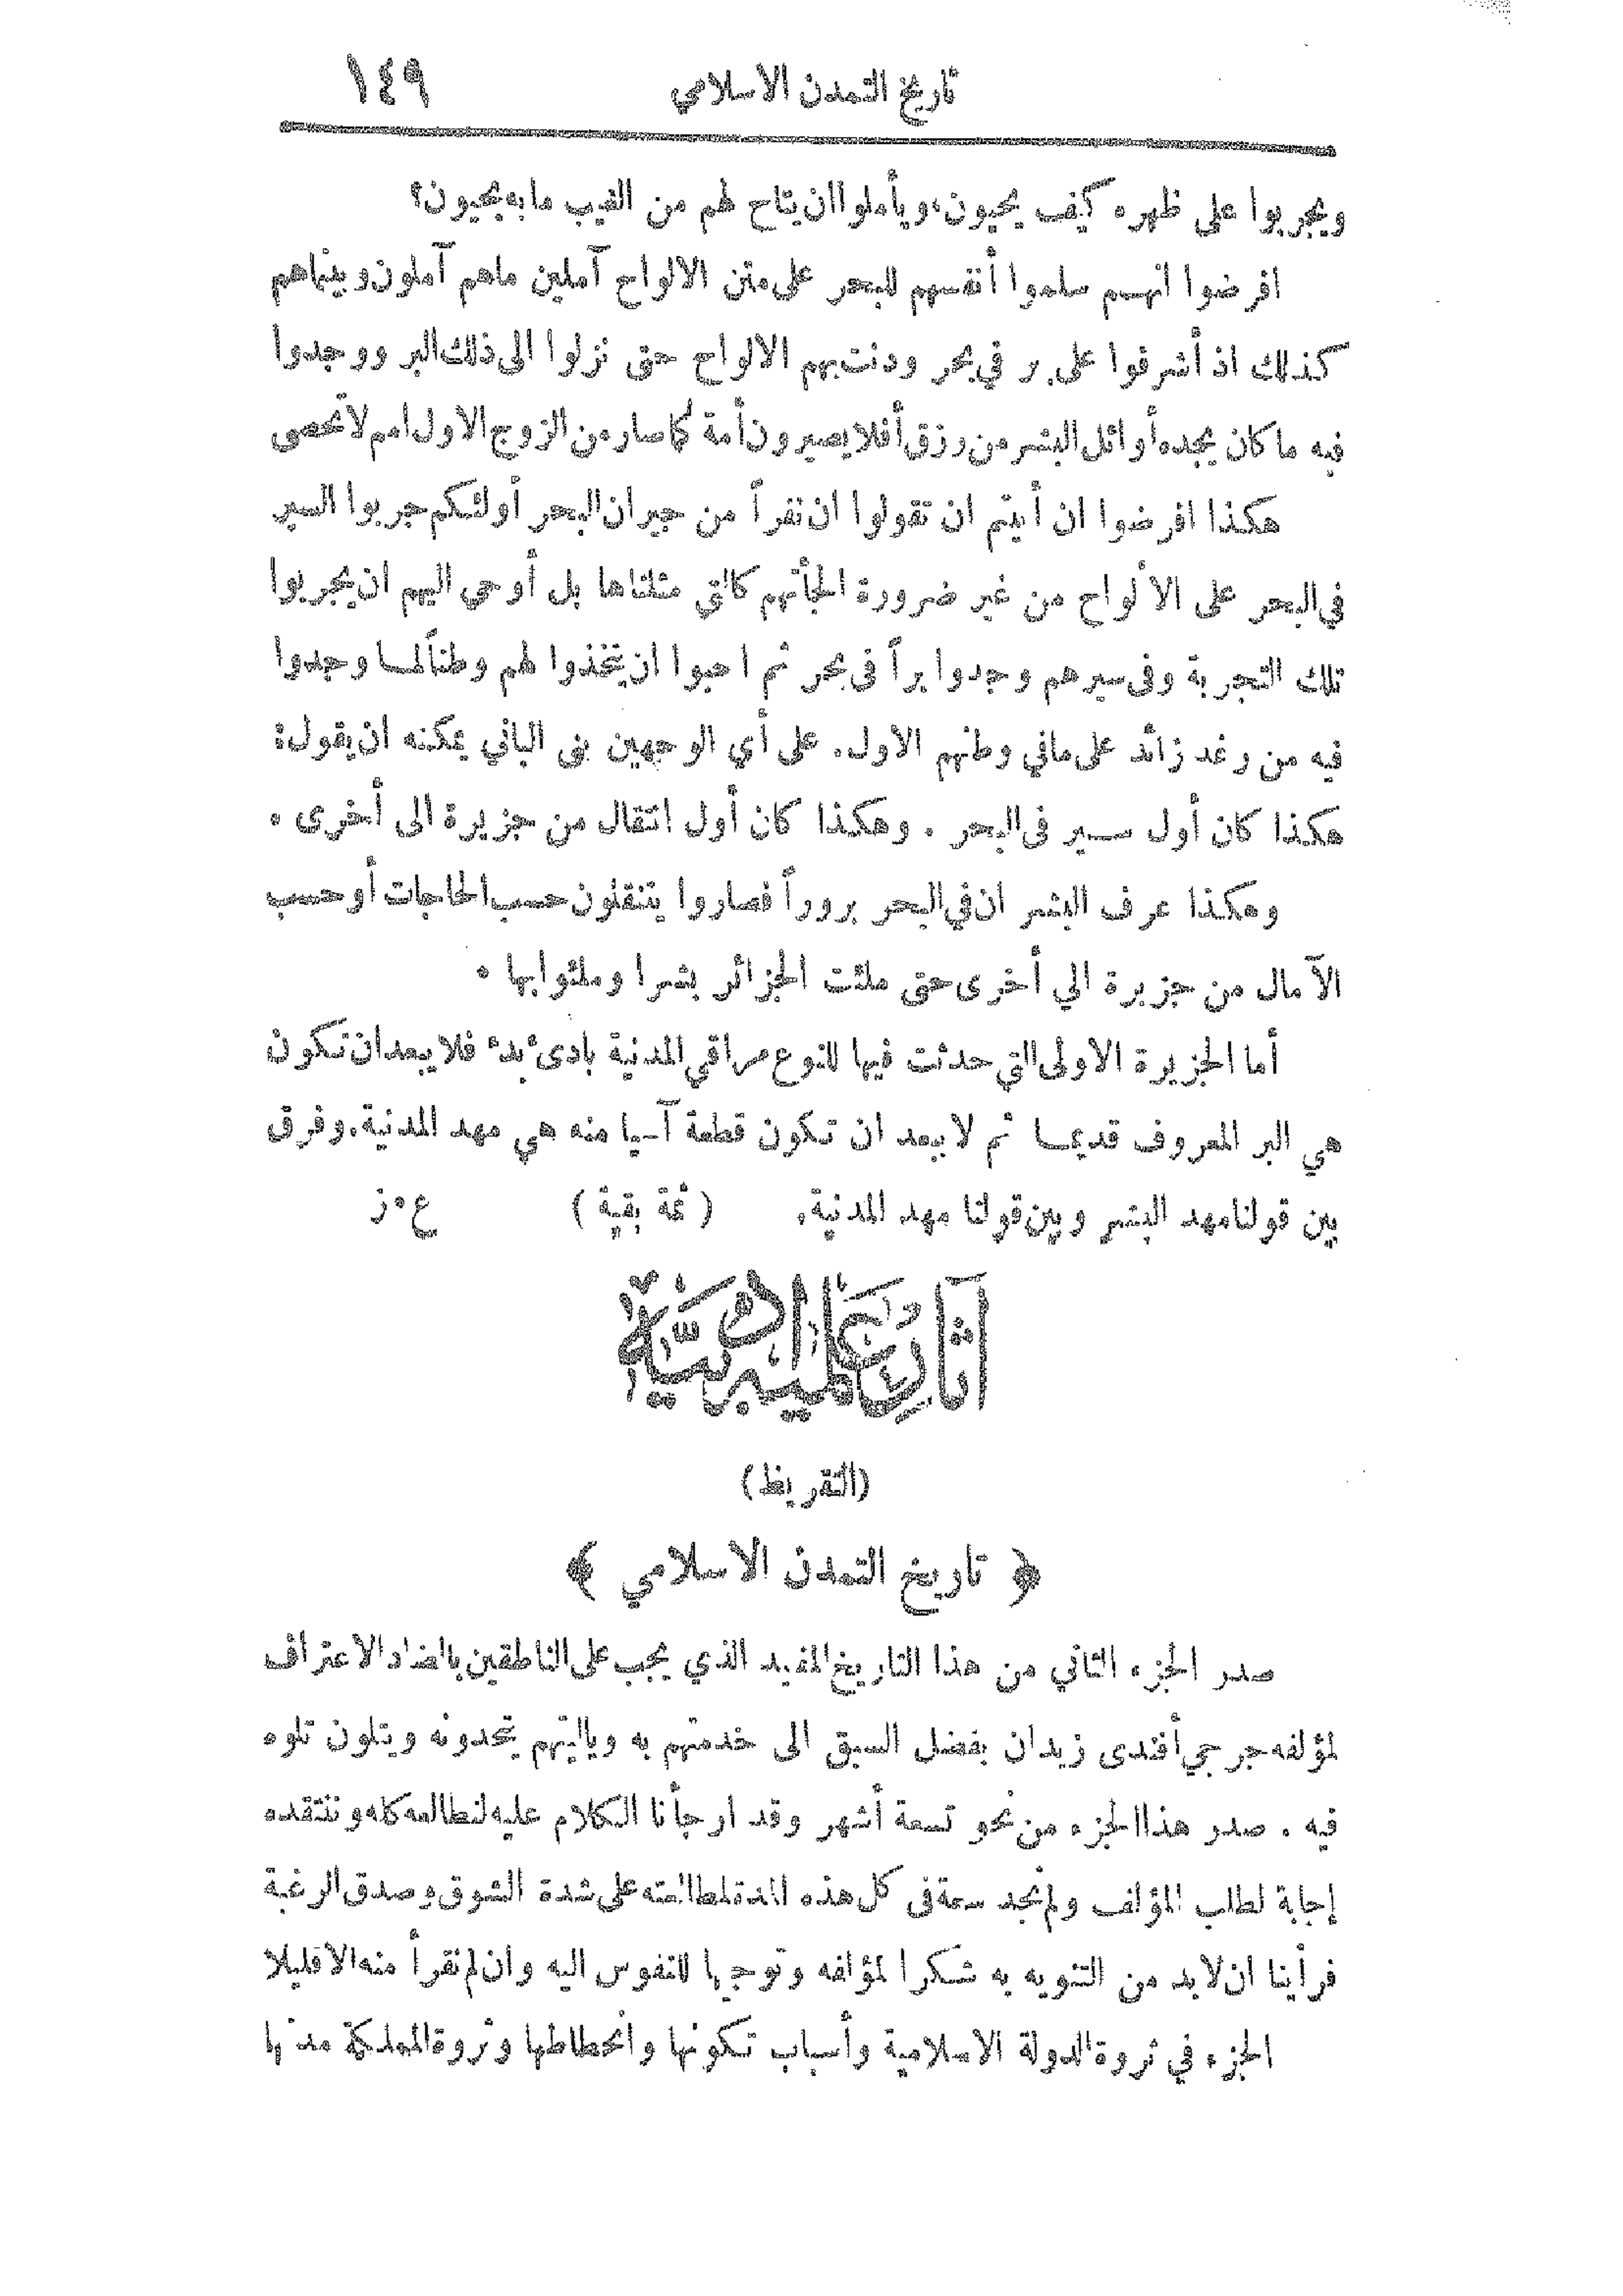 تاريخ التمدن الاسلامي ١٤٩
ويجربوا على ظهره كيف يحيون، ويأملوا ان يتاح لهم من الغيب ما به يحيون؟
افرضوا انهم سلموا أنفسهم للبحر على متن الالواح آملين ماهم آملون وبينماهم
كذلك اذ أشرفوا على بر في بحر ودنت بهم الالواح حتى نزلوا الى ذلك البر ووجدوا
فيه ما كان يجده أوائل البشر من رزق أفلا يصيرون أمة كما صار من الزوج الاول امم لا تحصى
هكذا افرضوا ان أبيتم ان تقولوا ان نفراً من جيران البحر أولئكم جربوا السير
في البحر على الألواح من غير ضرورة الجأتهم كالتي مثلناها بل أوحي اليهم ان يجربوا
تلك التجربة وفى سيرهم وجدوا براً فى بحر ثم احبوا ان يتخذوا لهم وطناً لما وجدوا
فيه من رغد زائد على مافي وطنهم الاول. على أي الوجهين بنى الباني يمكنه ان يقول:
هكذا كان أول سير فى البحر . وهكذا كان أول انتقال من جزيرة الى أخرى .
وهكذا عرف البشر ان في البحر بروراً فصاروا يتنقلون حسب الحاجات أو حسب
الآمال من جزيرة الي أخرى حتى ملئت الجزائر بشرا وملئوا بها .
أما الجزيرة الاولى التي حدثت فيها للنوع مراقي المدنية بادئ بدء فلا يبعد ان تكون
هي البر المعروف قديما ثم لا يبعد ان تكون قطعة آسيا منه هي مهد المدنية. وفرق
بين قولنا مهد البشر وبين قولنا مهد المدنية. ( ثمة بقية ) ع . ز
آثار علمية أدبية
(التقريظ)
﴿ تاريخ التمدن الاسلامي ﴾
صدر الجزء الثاني من هذا التاريخ المفيد الذي يجب على الناطقين بالضاد الاعتراف
لمؤلفه جرجي أفندى زيدان بفضل السبق الى خدمتهم به وياليتهم يتحدونه ويتلون تلوه
فيه . صدر هذا الجزء من نحو تسعة أشهر وقد ارجأنا الكلام عليه لنطالعه كله وننتقده
إجابة لطلب المؤلف ولم نجد سعة فى كل هذه المدة لمطالعته على شدة الشوق وصدق الرغبة
فرأينا ان لابد من التنويه به شكرا لمؤلفه وتوجيها للنفوس اليه وان لم نقرأ منه الا قليلا
الجزء في ثروة الدولة الاسلامية وأسباب تكونها وانحطاطها وثروة المملكة مدنها